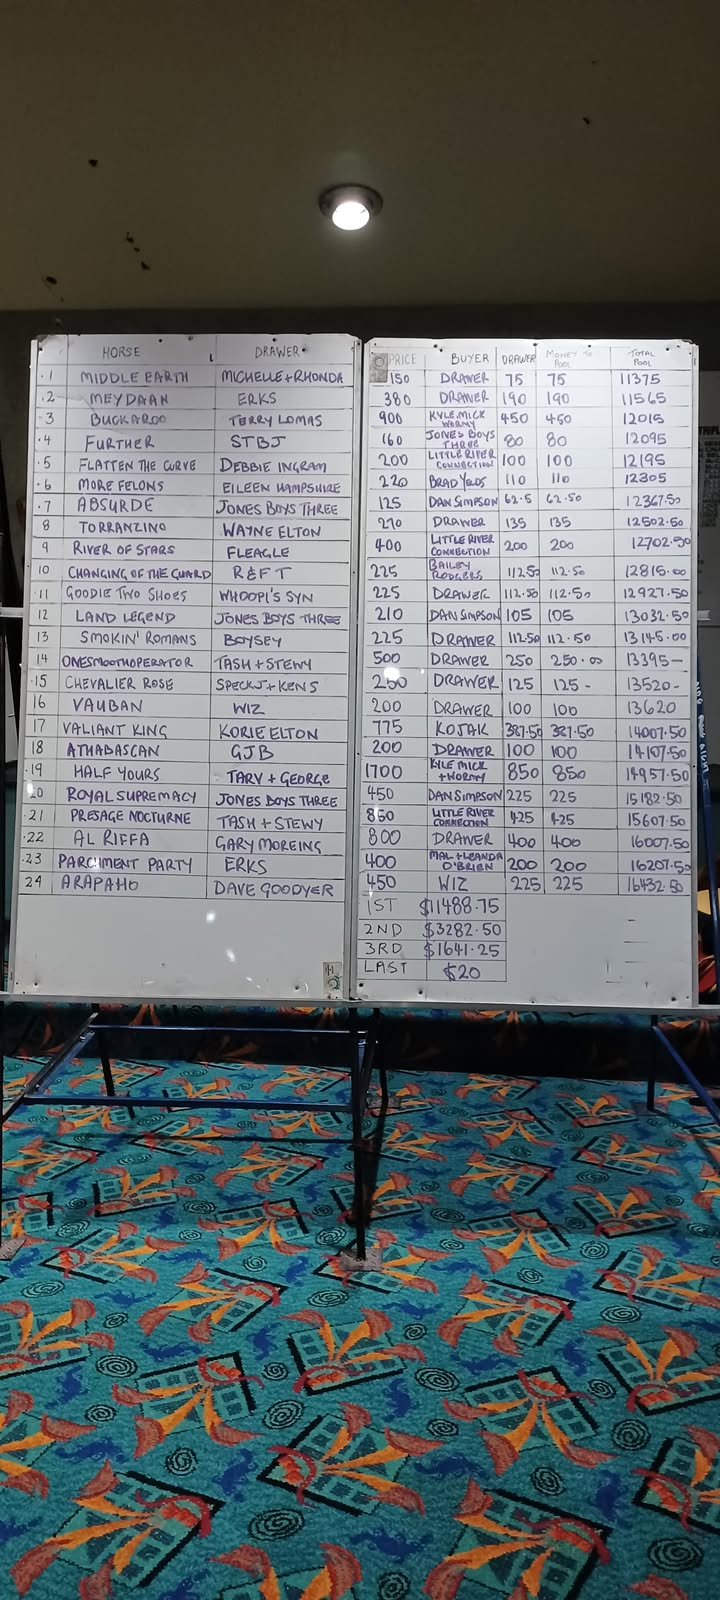 HORSE DRAWER PRICE BUYER DRAWER MONEY TO POOL TOTAL POOL
.1 MIDDLE EARTH MICHELLE + RHONDA 150 DRAWER 75 75 11375
.2 MEYDAAN ERKS 380 DRAWER 190 190 11565
.3 BUCKAROO TERRY LOMAS 900 KYLE.MICK WORMY 450 450 12015
.4 FURTHER STBJ 160 JONES BOYS THREE 80 80 12095
.5 FLATTEN THE CURVE DEBBIE INGRAM 200 LITTLE RIVER CONNECTION 100 100 12195
.6 MORE FELONS EILEEN HAMPSHIRE 220 BRAD 110 110 12305
.7 ABSURDE JONES BOYS THREE 125 DAN SIMPSON 62.5 62.50 12367.50
8 TORRANZINO WAYNE ELTON 270 DRAWER 135 135 12502.50
9 RIVER OF STARS FLEAGLE 400 LITTLE RIVER CONNECTION 200 200 12702.50
10 CHANGING OF THE GUARD R&FT 225 BAILEY RODGERS 112.50 112.50 12815.00
.11 GOODIE TWO SHOES WHOOPI'S SYN 225 DRAWER 112.50 112.50 12927.50
12 LAND LEGEND JONES BOYS THREE 210 DAN SIMPSON 105 105 13032.50
13 SMOKIN' ROMANS BOYSEY 225 DRAWER 112.50 112.50 13145.00
14 ONESMOOTHOPERATOR TASH + STEWY 500 DRAWER 250 250.00 13395-
.15 CHEVALIER ROSE SPECKJ + KENS 250 DRAWER 125 125- 13520-
16 VAUBAN WIZ 200 DRAWER 100 100 13620
17 VALIANT KING KORIE ELTON 775 KOJAK 387.50 387.50 14007.50
18 ATHABASCAN GJB 200 DRAWER 100 100 14107.50
.19 HALF YOURS TARV + GEORGE 1700 KYLE MICK + WORMY 850 850 14957.50
20 ROYAL SUPREMACY JONES BOYS THREE 450 DAN SIMPSON 225 225 15182.50
.21 PRESAGE NOCTURNE TASH + STEWY 850 LITTLE RIVER CONNECTION 425 425 15607.50
.22 AL RIFFA GARY MOREING 800 DRAWER 400 400 16007.50
.23 PARCHMENT PARTY ERKS 400 MAL + LEANDA O'BRIEN 200 200 16207.50
24 ARAPAHO DAVE GOODYER 450 WIZ 225 225 16432.50
1ST $11488.75
2ND $3282.50
3RD $1641.25
LAST $20